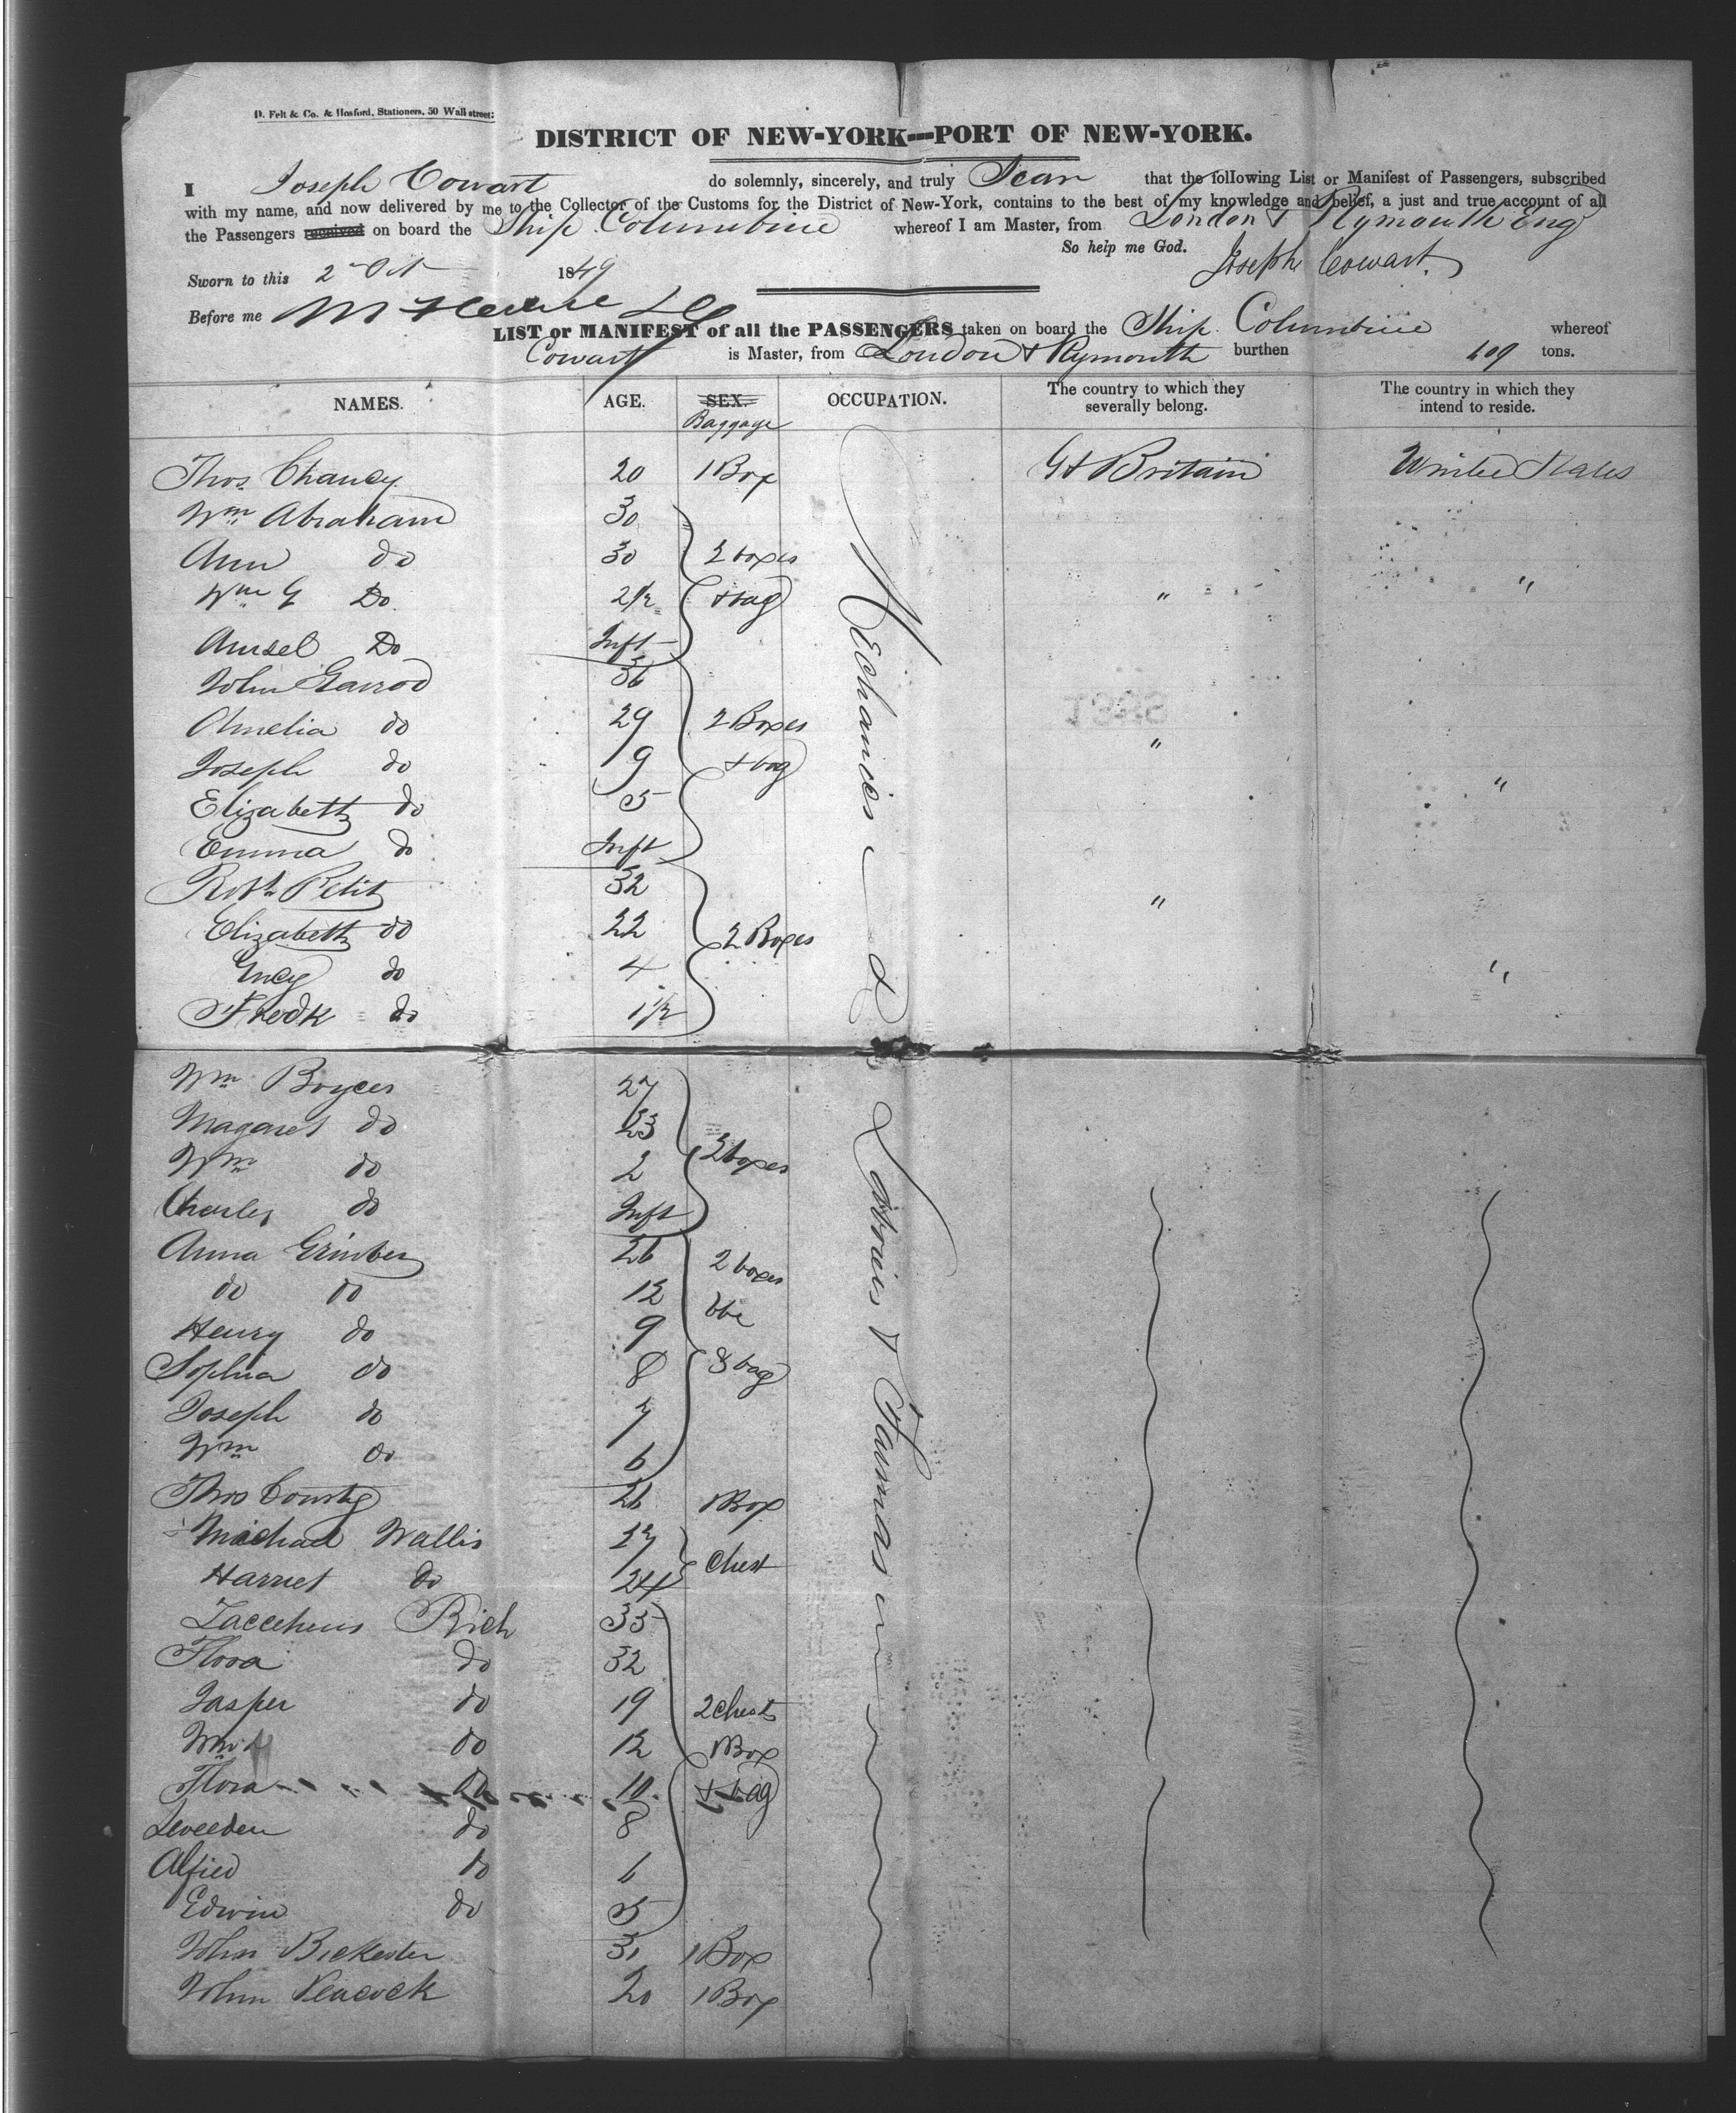 D. Felt & Co. & Hosford, Stationers, 50 Wall street:
DISTRICT OF NEW-YORK---PORT OF NEW-YORK.
I Joseph Cowart do solemnly, sincerely, and truly Swear that the following List or Manifest of Passengers, subscribed
with my name, and now delivered by me to the Collector of the Customs for the District of New-York, contains to the best of my knowledge and belief, a just and true account of all
the Passengers received on board the Ship Columbine whereof I am Master, from London & Plymouth Eng
So help me God.
Joseph Cowart
Sworn to this 2 Oct 1849
Before me
LIST or MANIFEST of all the PASSENGERS taken on board the Ship Columbine whereof
Cowart is Master, from London & Plymouth burthen 409 tons.
NAMES. AGE. SEX. OCCUPATION. The country to which they severally belong. The country in which they intend to reside.
Baggage
Mechanics & Labories & Farmers
Thos Chancy 20 1 Box Gt Britain United States
Wm Abraham 30
Ann do 30 2 boxes
Wm G Do 2 1/2 & bag " "
Amsel Do Inft
John Garrod 36
Amelia do 29 2 Boxes
Joseph do 9 & bag " "
Elizabeth do 5
Emma do Inft
Robt Petit 32 "
Elizabeth do 22 2 Boxes
Lucy do 4 "
Fredk do 1 1/2
Wm Boyces 27
Magaret do 23
Wm do 2 2 boxes
Charles do Inft
Anna Grimbey 26 2 boxes
do do 12
Henry do 9
Sophia do 8 & bag
Joseph do 7
Wm do 6
Thos 26 1 Box
Michael Wallis 27
Harriet do 24 Chest
Zaccheus Rich 33
Flora do 32
Jasper do 19 2 Chests
Wm do 12 1 Box
Flora do 10 & bag
do 8
Alfred do 6
Edwin do 5
John Bickester 31 1 Box
John Peacock 20 1 Box